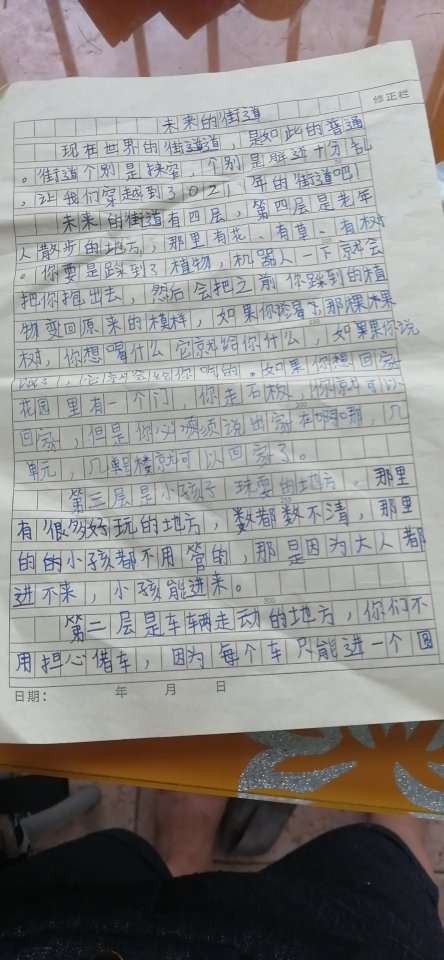 修正栏
未来的街道
现在世界的街道道，是如此的普通
。街道个别是挟窄，个别是脏还十分乱
，让我们穿越到3021年的街道吧！
未来的街道有四层，第四层是老年
人散步的地方，那里有花、有草、有树
。你要是踩到了植物，机器人一下就会
把你抱出去，然后会把之前你踩到的植
物变回原来的模样，如果你渴了那棵果
树，你想喝什么它就给你什么，如果你说
它就会给你喝的。如果你想回家
花园里有一个门，你走石板，你就可以
回家，但是你必须说出家在哪，几
单元，几单楼就可以回家了。
第三层是小孩子玩耍的地方。那里
有很多好玩的地方，数都数不清，那里
的的小孩都不用管的，那是因为大人都
进不来，小孩能进来。
第二层是车辆走动的地方，你们不
用担心借车，因为每个车只能进一个圆
日期： 年 月 日